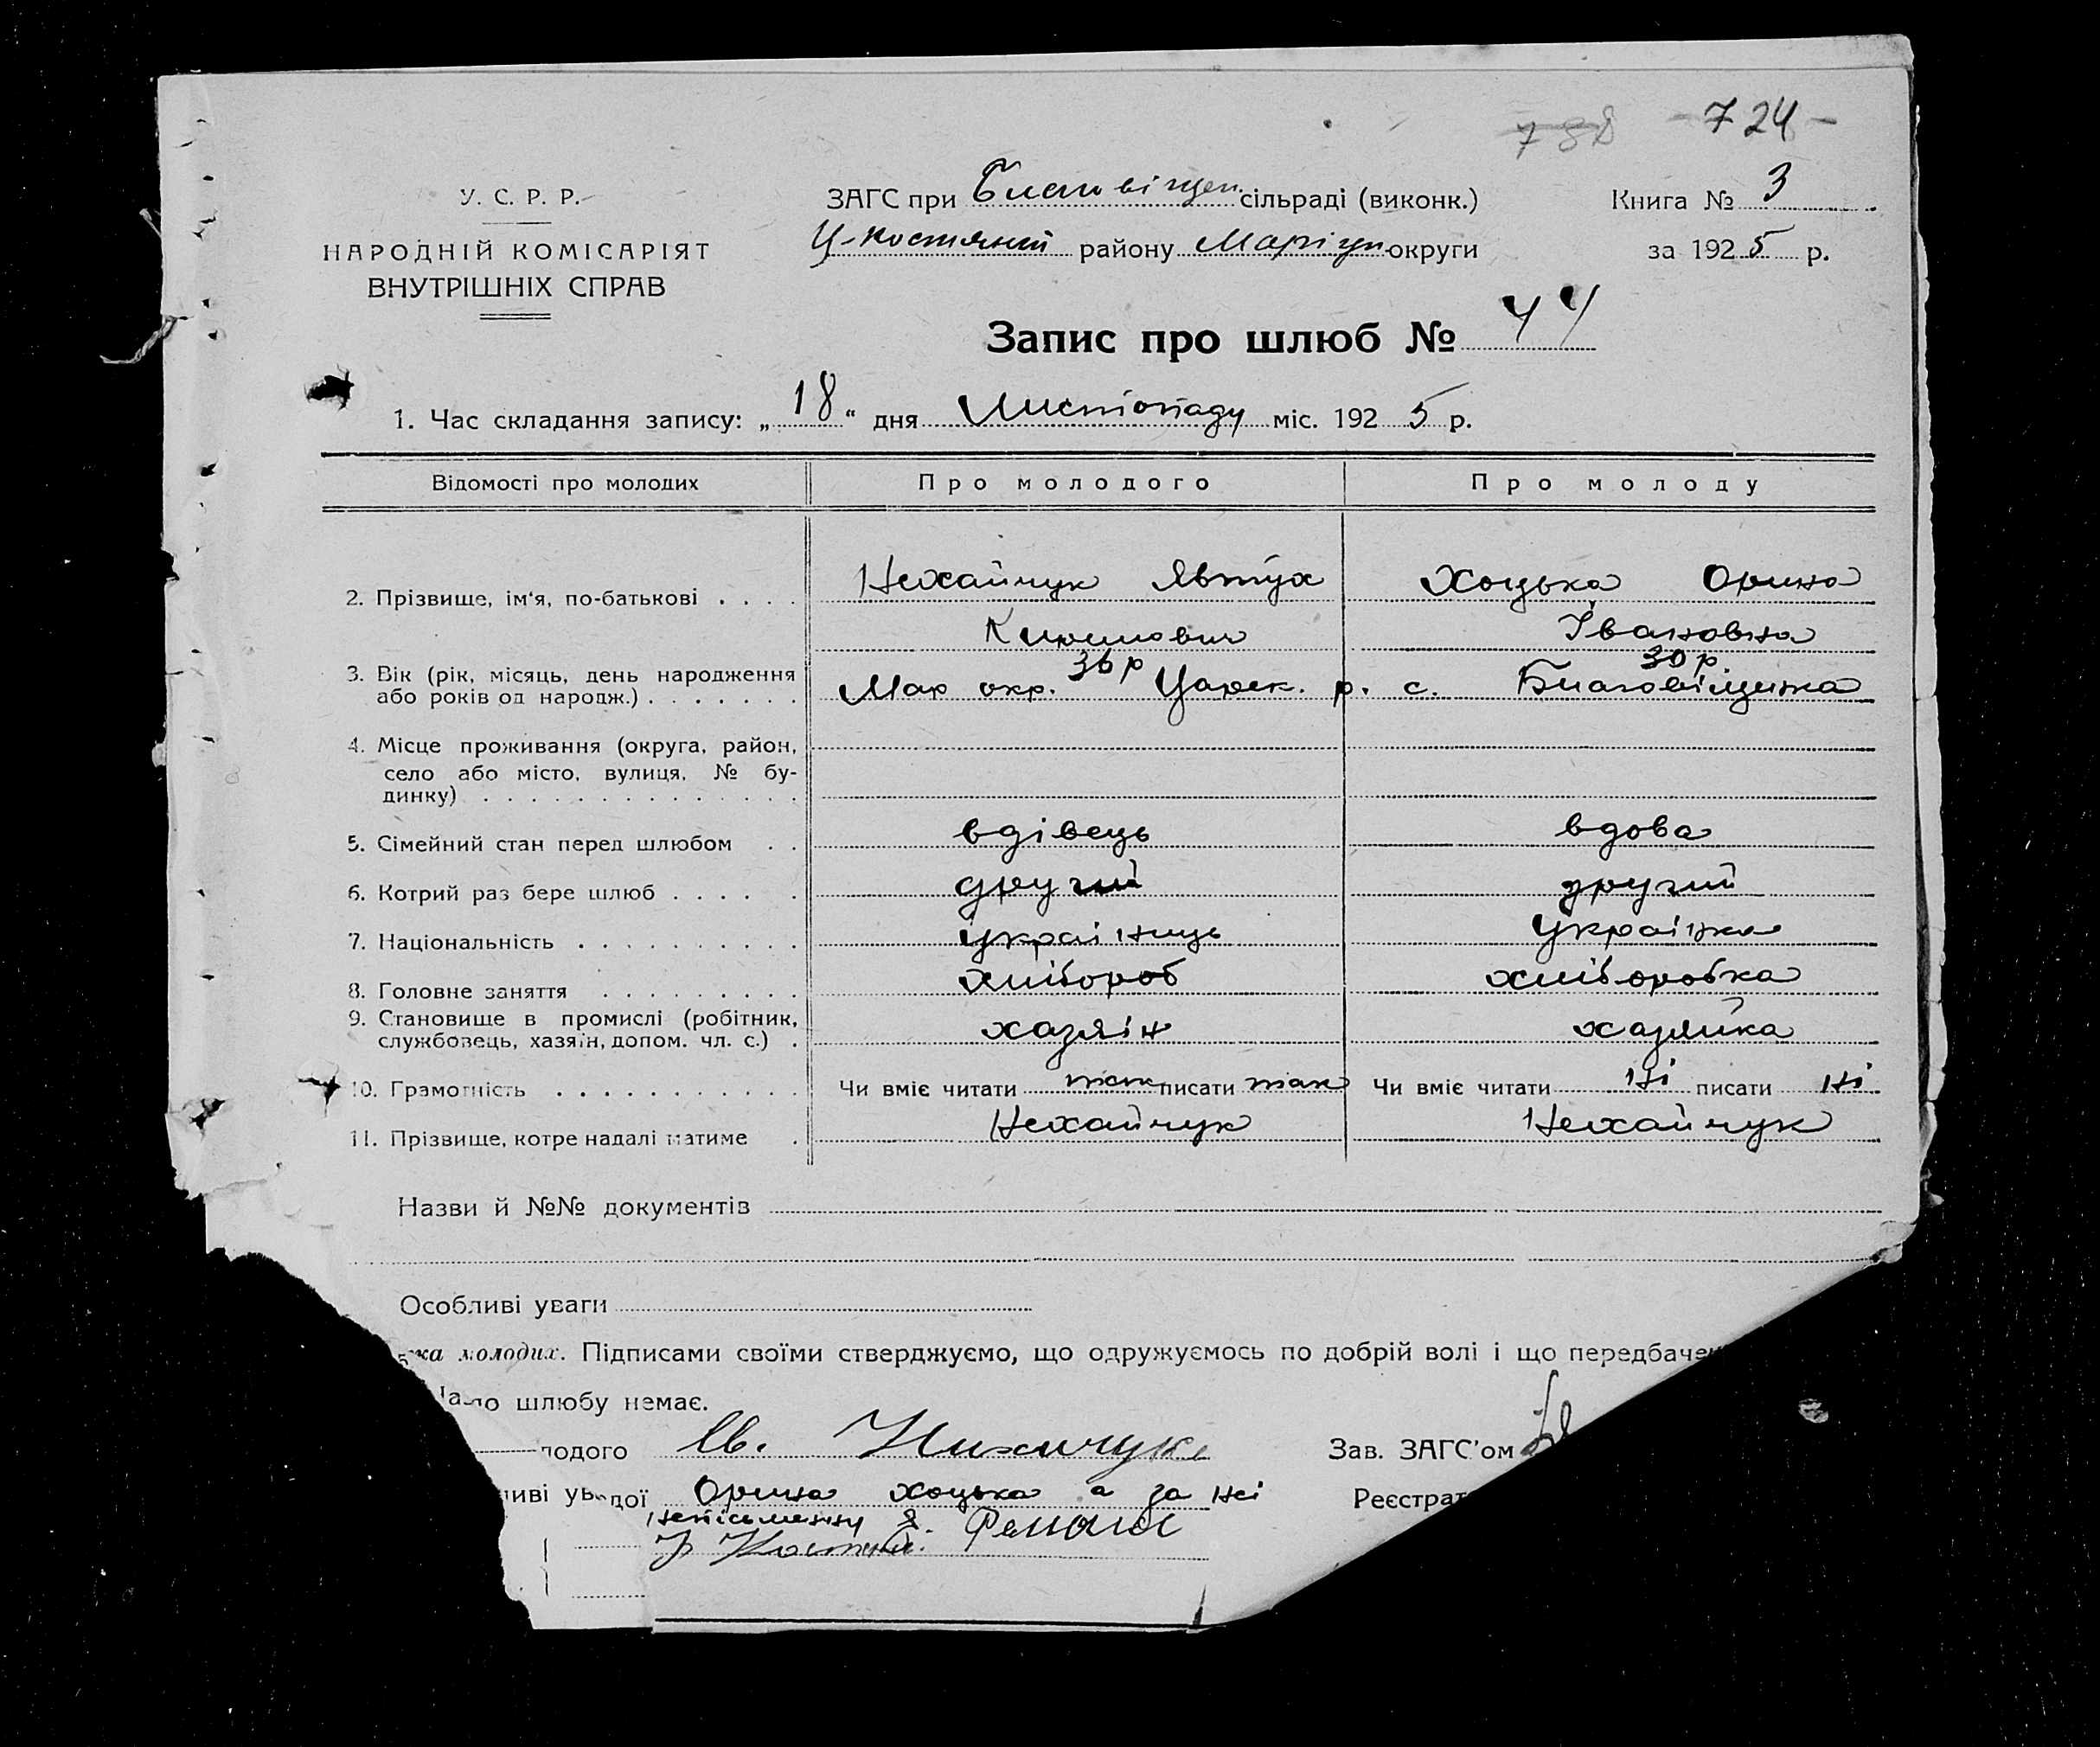 788 - 724 -
У. С. Р. Р.
НАРОДНІЙ КОМІСАРІЯТ
ВНУТРІШНІХ СПРАВ
ЗАГС при Благовіщен. сільраді (виконк.)
Ц-Костянтин району Маріуп округи
Книга № 3
за 1925 р.
Запис про шлюб № 44
1. Час складання запису: „18“ дня Листопаду міс. 1925 р.
Відомості про молодих Про молодого Про молоду
2. Прізвище, ім'я, по-батькові . . . . Нехайчук Явтух Хоцька Орина
Кирилович Івановна
36 р 30 р.
3. Вік (рік, місяць, день народження
або років од народж.) . . . . . . . Мар окр. Царек. р. с. Благовіщинка
4. Місце проживання (округа, район,
село або місто, вулиця, № бу-
динку) . . . . . . . . . . . . . .
5. Сімейний стан перед шлюбом . . вдівець вдова
6. Котрий раз бере шлюб . . . . . другий другий
7. Національність . . . . . . . . . . українць Українка
8. Головне заняття . . . . . . . . . хлібороб хліборобка
9. Становище в промислі (робітник,
службовець, хазяїн, допом. чл. с.) . хазяїн хазяйка
10. Грамотність . . . . . . . . . . . Чи вміє читати так писати так Чи вміє читати ні писати ні
11. Прізвище, котре надалі матиме . Нехайчук Нехайчук
Назви й №№ документів
Особливі уваги
ка молодих. Підписами своїми стверджуємо, що одружуємось по добрій волі і що передбачен
до шлюбу немає.
лодого Нихичукъ Зав. ЗАГС'ом
иві ув дої Орина Хоцька а за неі Реєстрат
непісьменну